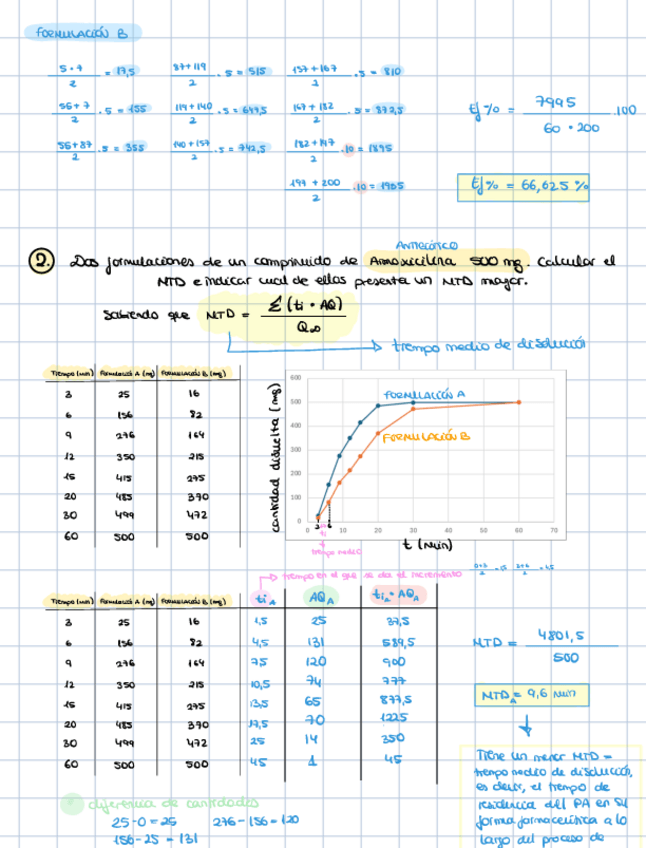 FORMULACIÓN B
5·7/2 = 17,5
87+119/2 · 5 = 515
157+167/2 · 5 = 810
56+7/2 · 5 = 155
119+140/2 · 5 = 647,5
167+182/2 · 5 = 872,5
56+87/2 · 5 = 355
140+157/2 · 5 = 742,5
182+197/2 · 10 = 1895
199+200/2 · 10 = 1985
Ef% = 7995/60·200 · 100
Ef% = 66,625%
Antibiótico
2. Dos formulaciones de un comprimido de Amoxicilina 500 mg. Calcular el
MTD e indicar cual de ellas presenta un MTD mayor.
Sabiendo que MTD = Σ(ti·AQ)/Q∞
tiempo medio de disolución
Tiempo (min) Formulació A (mg) Formulación B (mg)
3 25 16
6 156 82
9 276 164
12 350 215
15 415 275
20 485 370
30 499 472
60 500 500
cantidad disuelta (mg)
600
500
400
300
200
100
0
FORMULACIÓN A
FORMULACIÓN B
0 10 20 30 40 50 60 70
3 6
t (min)
ti
tiempo medio
tiempo en el que se da el incremento
0+3/2 = 1,5 3+6/2 = 4,5
Tiempo (min) Formulació A (mg) Formulación B (mg) tiA AQA tiA·AQA
3 25 16 1,5 25 37,5
6 156 82 4,5 131 589,5
9 276 164 7,5 120 900
12 350 215 10,5 74 777
15 415 275 13,5 65 877,5
20 485 370 17,5 70 1225
30 499 472 25 14 350
60 500 500 45 1 45
MTD = 4801,5/500
MTDA = 9,6 min
Tiene un menor MTD =
tiempo medio de disolución,
es decir, el tiempo de
residencia del PA en su
forma farmacéutica a lo
largo del proceso de
diferencia de cantidades
25-0 = 25 276-156 = 120
156-25 = 131